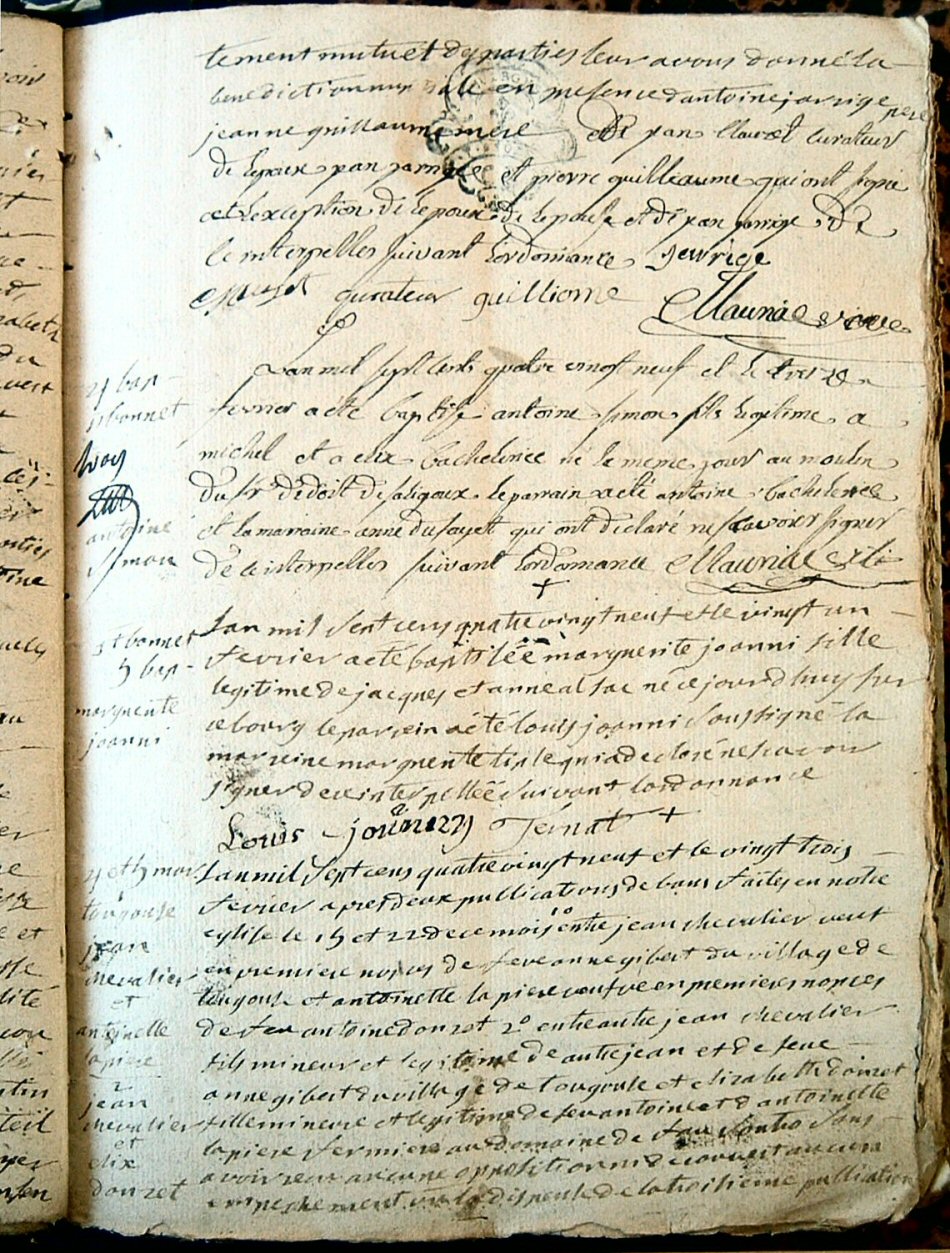 tement mutuel des parties leur avons donné la
benediction nup tiale en presence d antoine jarrige pere
jeanne guillaume mere et de jean curateur
de lepoux jean jarrige et pierre guilleaume qui ont signé
a lexception de lepoux de lepouse et de jean jarrige de
ce interpelles suivant lordonnance jarrige
curateur guilliome Mauriac vicaire
4 bap
st bonnet
antoine
simon
Lan mil sept cents quatre vingt neuf et le treize
fevrier a eté baptisé antoine simon fils legitime a
michel et a elix bachelerie né le meme jour au moulin
du sr de saligoux le parrain a eté antoine bachelerie
et la marraine anne dufayet qui ont declaré ne scavoir signer
de ce interpelles suivant lordonnance Mauriac
st bonnet
5 bap
marguerite
joanni
Lan mil sept cens quatre vingt neuf et le vingt un
fevrier a eté baptisée marguerite joanni fille
legitime de jacques et anne alsac née ce jourd huy sur
ce bourg le parrein a été louis joanni soussigné la
marreine marguerite qui a declaré ne scavoir
signer de ce interpellée suivant lordonnance
Louis joanny Ternat
4 et 5 mar
tougouse
jean
chevalier
et
antoinette
lapiere
2
jean
chevalier
et
elix
donzet
Lan mil sept cens quatre vingt neuf et le vingt trois
fevrier apres deux publications de bans faites en notre
eglise le 15 et 22 de ce mois 1o entre jean chevalier veuf
en premiere nopces de feue anne gibert du village de
tougouse et antoinette lapiere veufve en premieres nopces
de feu antoine donzet 2o entre autre jean chevalier
fils mineur et legitime de autre jean et de feue
anne gibert du village de tougouse et elizabeth donzet
fille mineure et legitime de feu antoine et d antoinette
lapiere fermiere au domaine de sans
avoir receu aucune opposition ni decouvert aucun
empeschement vu la dispense de la troisieme publication